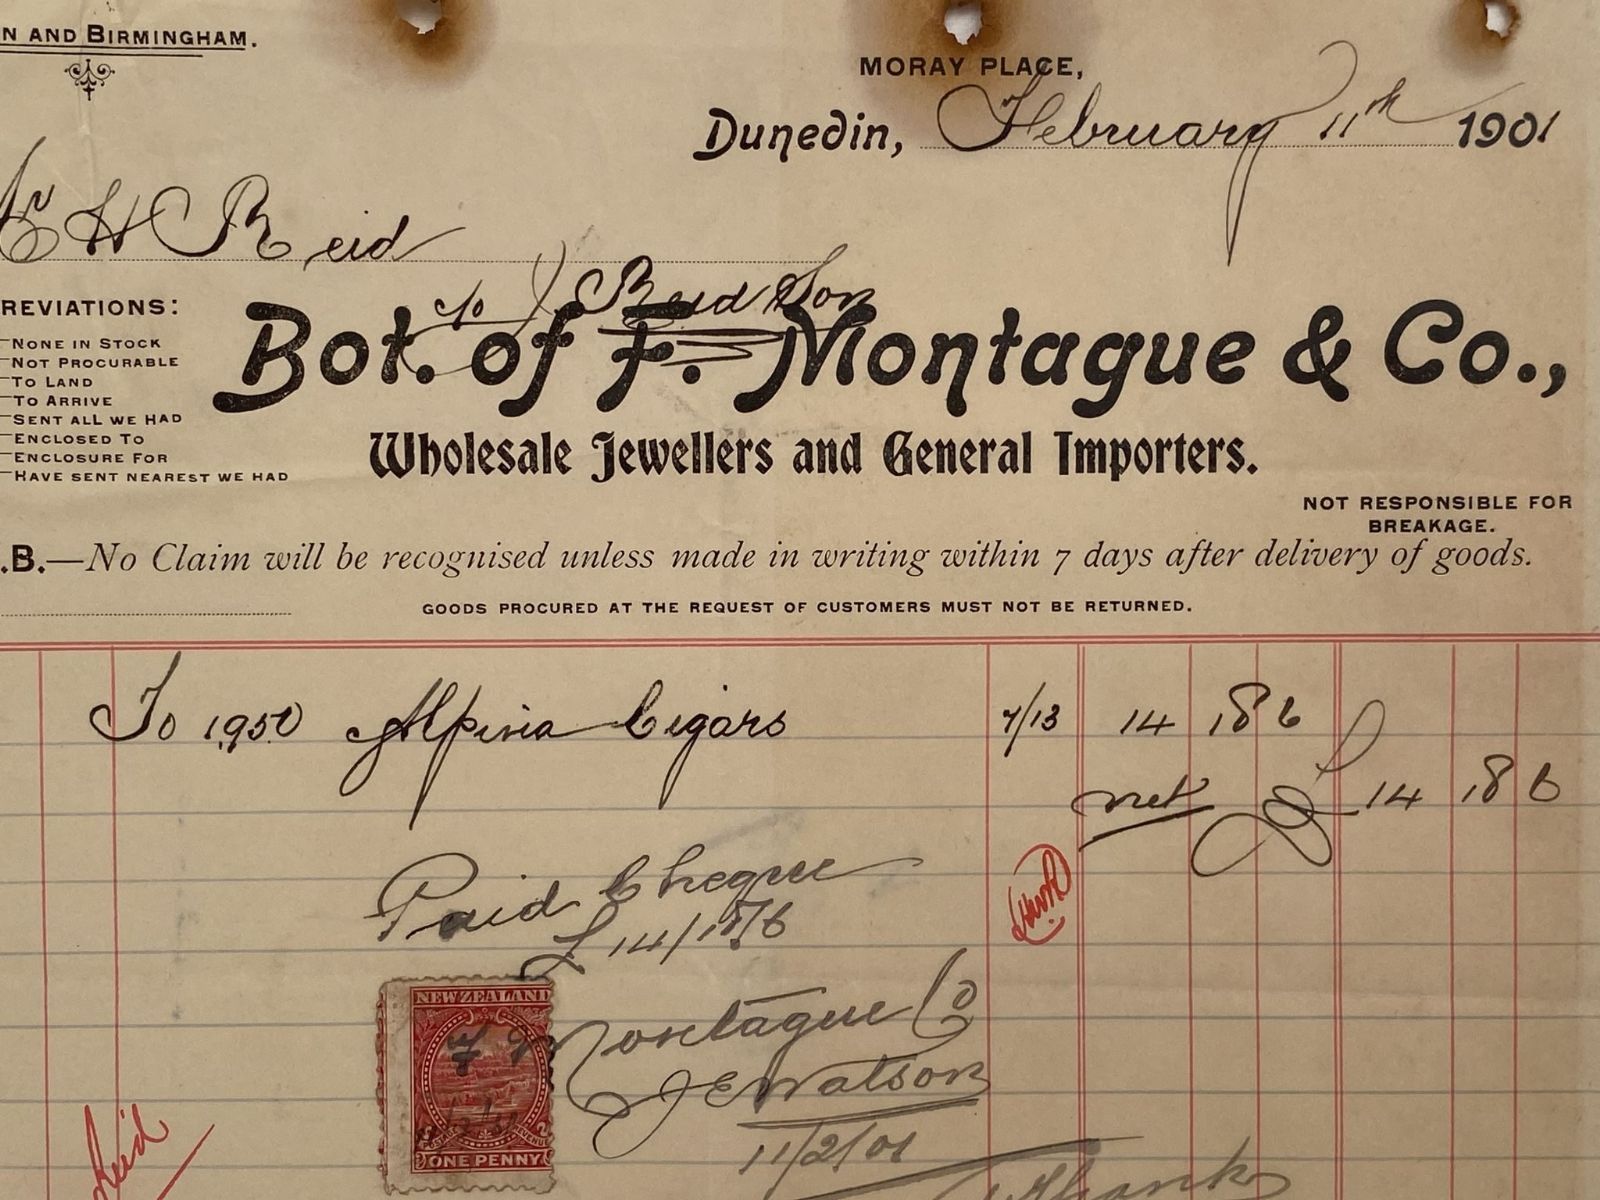 N AND BIRMINGHAM.
MORAY PLACE,
Dunedin, February 11th 1901
E H Reid
c/o J Reid Son
REVIATIONS:
NONE IN STOCK
NOT PROCURABLE
TO LAND
TO ARRIVE
SENT ALL WE HAD
ENCLOSED TO
ENCLOSURE FOR
HAVE SENT NEAREST WE HAD
Bot. of F. Montague & Co.,
Wholesale Jewellers and General Importers.
NOT RESPONSIBLE FOR
BREAKAGE.
.B.—No Claim will be recognised unless made in writing within 7 days after delivery of goods.
GOODS PROCURED AT THE REQUEST OF CUSTOMERS MUST NOT BE RETURNED.
To 1950 Alpina Cigars 7/13 14 18 6
net £ 14 18 6
Paid Cheque
£14/18/6
NEW ZEALAND
F Montague Co
J E Watson
11/2/01
POSTAGE REVENUE
ONE PENNY
11/2/01
Reid
Thanks